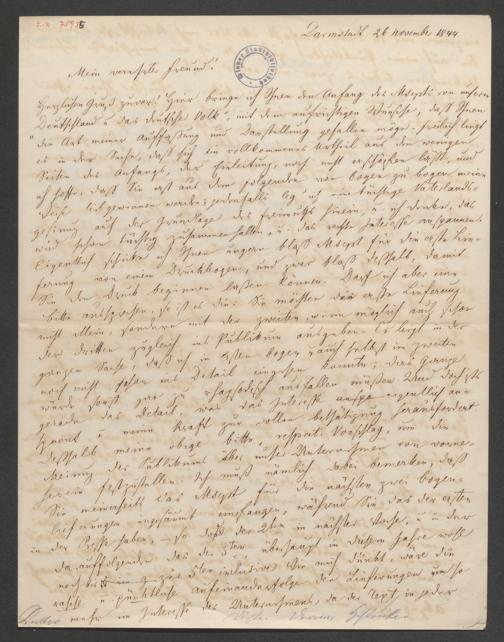 Darmstadt, 26 November 1844.
Mein verehrter Freund!
Herzlichen Gruß zuvor! Hier bringe ich Ihnen den Anfang des Mscpts. von unserm
"Deutschland u. das deutsche Volk", mit dem aufrichtigen Wunsche, daß Ihnen
die Art meiner Auffassung und Darstellung gefallen möge. Freilich liegt
es in der Sache, daß sich ein vollkommenes Urtheil aus den wenigen
Seiten des Anfangs, der Einleitung, noch nicht erschöpfen läßt, und
ich hoffe, daß Sie erst aus dem folgenden von Bogen zu Bogen meine
liebgewinnen werden; jedenfalls leg' ich eine tüchtige Vaterlands-
gesinnung auf der Grundlage des Freimuths hinein, u. ich denke, das
wird schon tüchtig zusammenhalten, u. das erste Interesse anspannen.
Eigentlich schicke ich Ihnen ungern bloß Mscpt für die erste Lie-
ferung von einem Druckbogen, und zwar bloß deßhalb, damit
Sie den Druck beginnen lassen können. Darf ich aber eine
Bitte aussprechen, so ist es die: Sie möchten die erste Lieferung
nicht allein, sondern mit der zweiten, wenn möglich auch schon
der dritten zugleich ins Publikum ausgeben. Es liegt in der
ganzen Sache, daß ich im ersten Bogen, auch selbst im zweiten
noch nicht schon ins Detail eingehen konnte; das Ganze
würde sonst gar zu rhapsodisch ausfallen müssen. Und doch ists
gerade das Detail, was das Interesse eigentlich an-
spannt u. meine Kraft zur vollen Bethätigung herausfordert.
Deßhalb meine obige Bitte, respect. Vorschlag, um die
Meinung des Publikums über unser Unternehmen von vorne-
herein festzustellen. Ich muß nämlich dabei bemerken, daß
Sie meinerseits das Mscpt für die nächsten zwei Bogen
Lieferungen insgesammt empfangen, während Sie das der ersten
in der Presse haben, so daß der 2ten in nächster Woche, u. in der
darauffolgenden das der 3ten überhaupt in diesem Jahre wohl
noch bis zur 5ten inclusive. Wie mich dünkt, wäre eine
rasche u. pünktliche Aufeinanderfolge der Lieferungen um so
mehr im Interesse des Unternehmens, da der Text in jeder
Duller